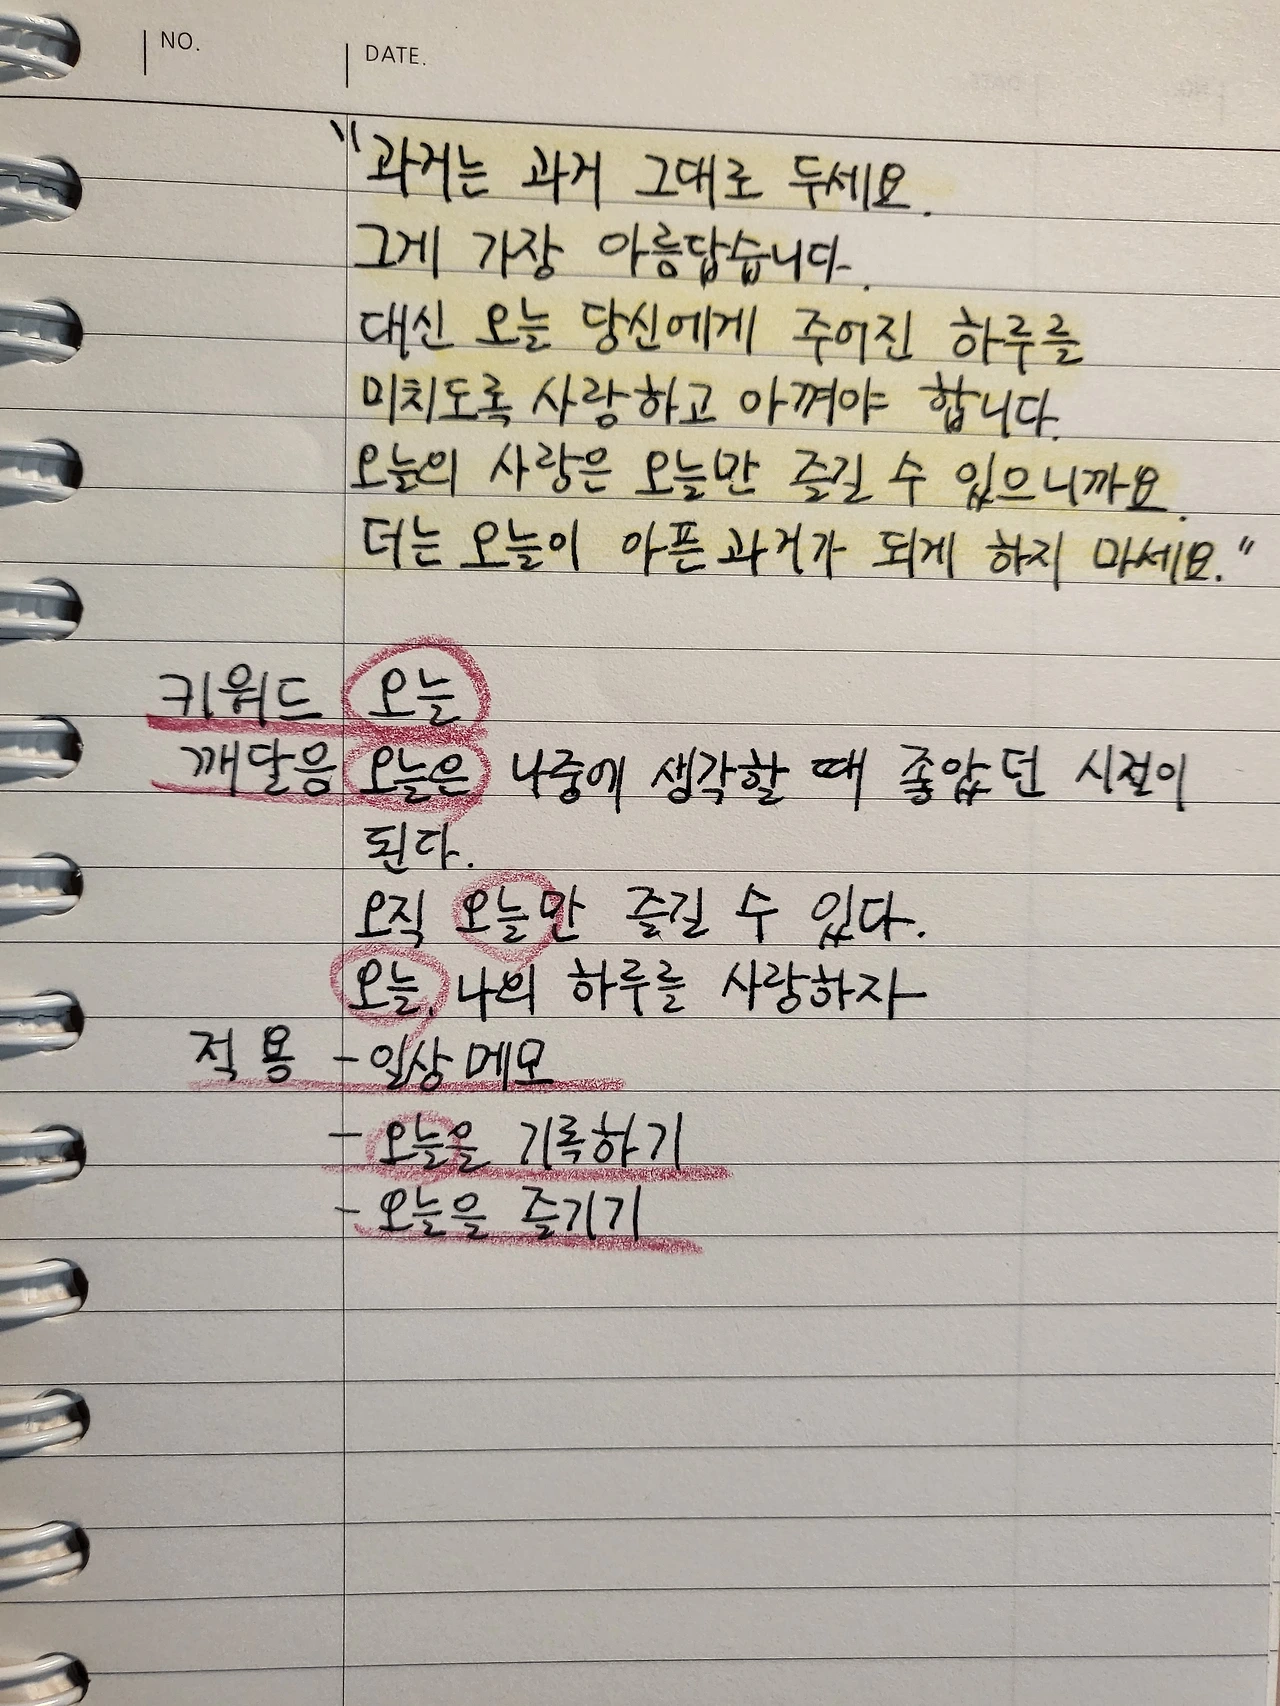 NO. DATE.
"과거는 과거 그대로 두세요.
그게 가장 아름답습니다.
대신 오늘 당신에게 주어진 하루를
미치도록 사랑하고 아껴야 합니다.
오늘의 사랑은 오늘만 즐길 수 있으니까요.
더는 오늘이 아픈 과거가 되게 하지 마세요."
키워드 오늘
깨달음 오늘은 나중에 생각할 때 좋았던 시절이
된다.
오직 오늘만 즐길 수 있다.
오늘, 나의 하루를 사랑하자
적용 - 일상 메모
- 오늘을 기록하기
- 오늘을 즐기기